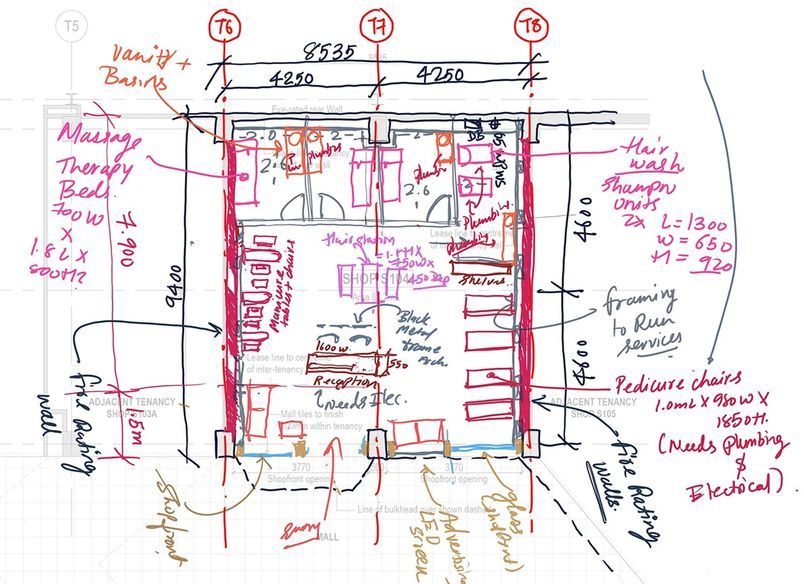 T5
T6
T7
T8
8535
4250
4250
Vanity +
Basins
Fire-rated rear Wall
Massage
Therapy
Beds.
700W
X
1.8L X
800Ht.
7.900
9400
1.5m
2.0
2.6
2.6
Plumbing
Plumbing
Hair
wash
Shampu
units
2x L=1300
W=650
H=920
4600
4600
Plumbing
Shelves
Manicure
tables + chairs
Hair station
SHOP S104
Black
Metal
frame
1600W
550
Reception
Needs Elec.
Framing
to Run
services
Pedicure chairs
1.0mL X 950W X
1850Ht.
(Needs plumbing
&
Electrical).
Lease line to centre
of inter-tenancy
Mall tiles to finish
within tenancy
ADJACENT TENANCY
SHOP S103A
ADJACENT TENANCY
SHOP S105
Fire Rating
Wall
Fire Rating
Walls.
3770
Shopfront opening
3770
Shopfront opening
Line of bulkhead over shown dashed
MALL
Shopfront
Entry
Advertising
LED
Screen
glass